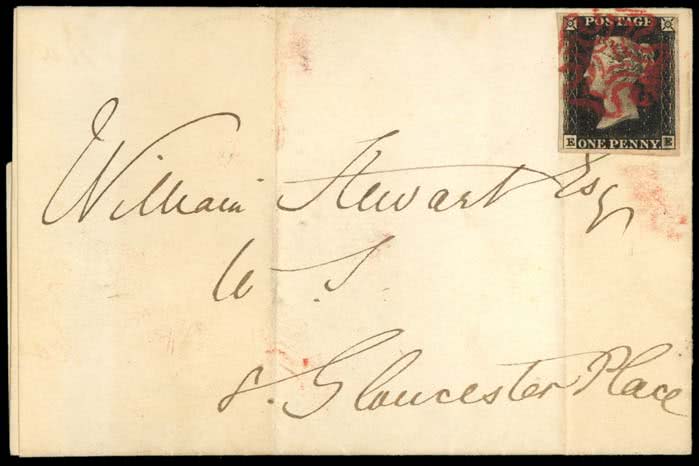 POSTAGE
ONE PENNY
E E
William Stewart Esqr
W. S.
8. Gloucester Place